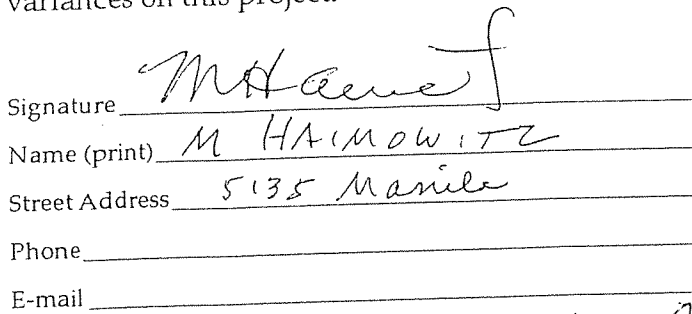 variances on this project.
Signature
Name (print) M HAIMOWITZ
Street Address 5135 Manila
Phone
E-mail